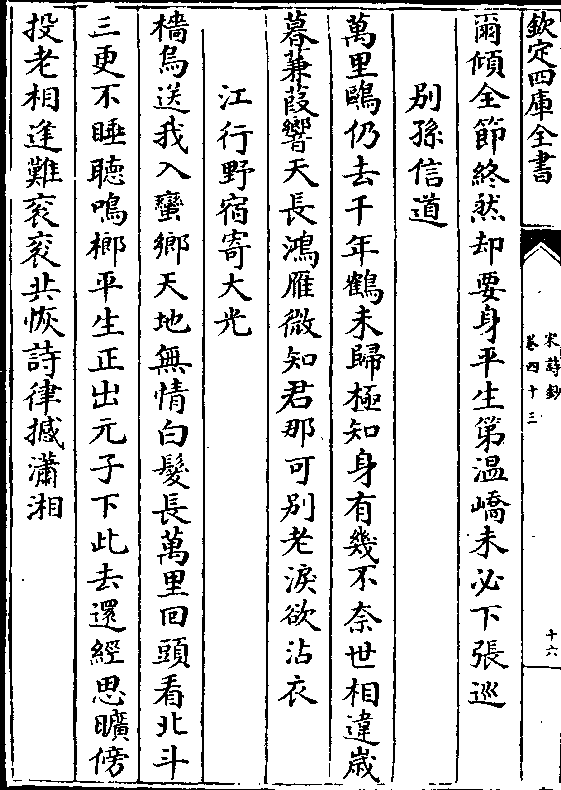 欽定四庫全書
宋詩鈔
卷四十三
十六
爾傾全節終然却要身平生第温嶠未必下張巡
別孫信道
萬里鷗仍去千年鶴未歸極知身有幾不奈世相違歲
暮蒹葭響天長鴻雁微知君那可別老淚欲沾衣
江行野宿寄大光
檣烏送我入蠻鄉天地無情白髮長萬里回頭看北斗
三更不睡聽鳴榔平生正出元子下此去還經思曠傍
投老相逢難衮衮共恢詩律撼瀟湘